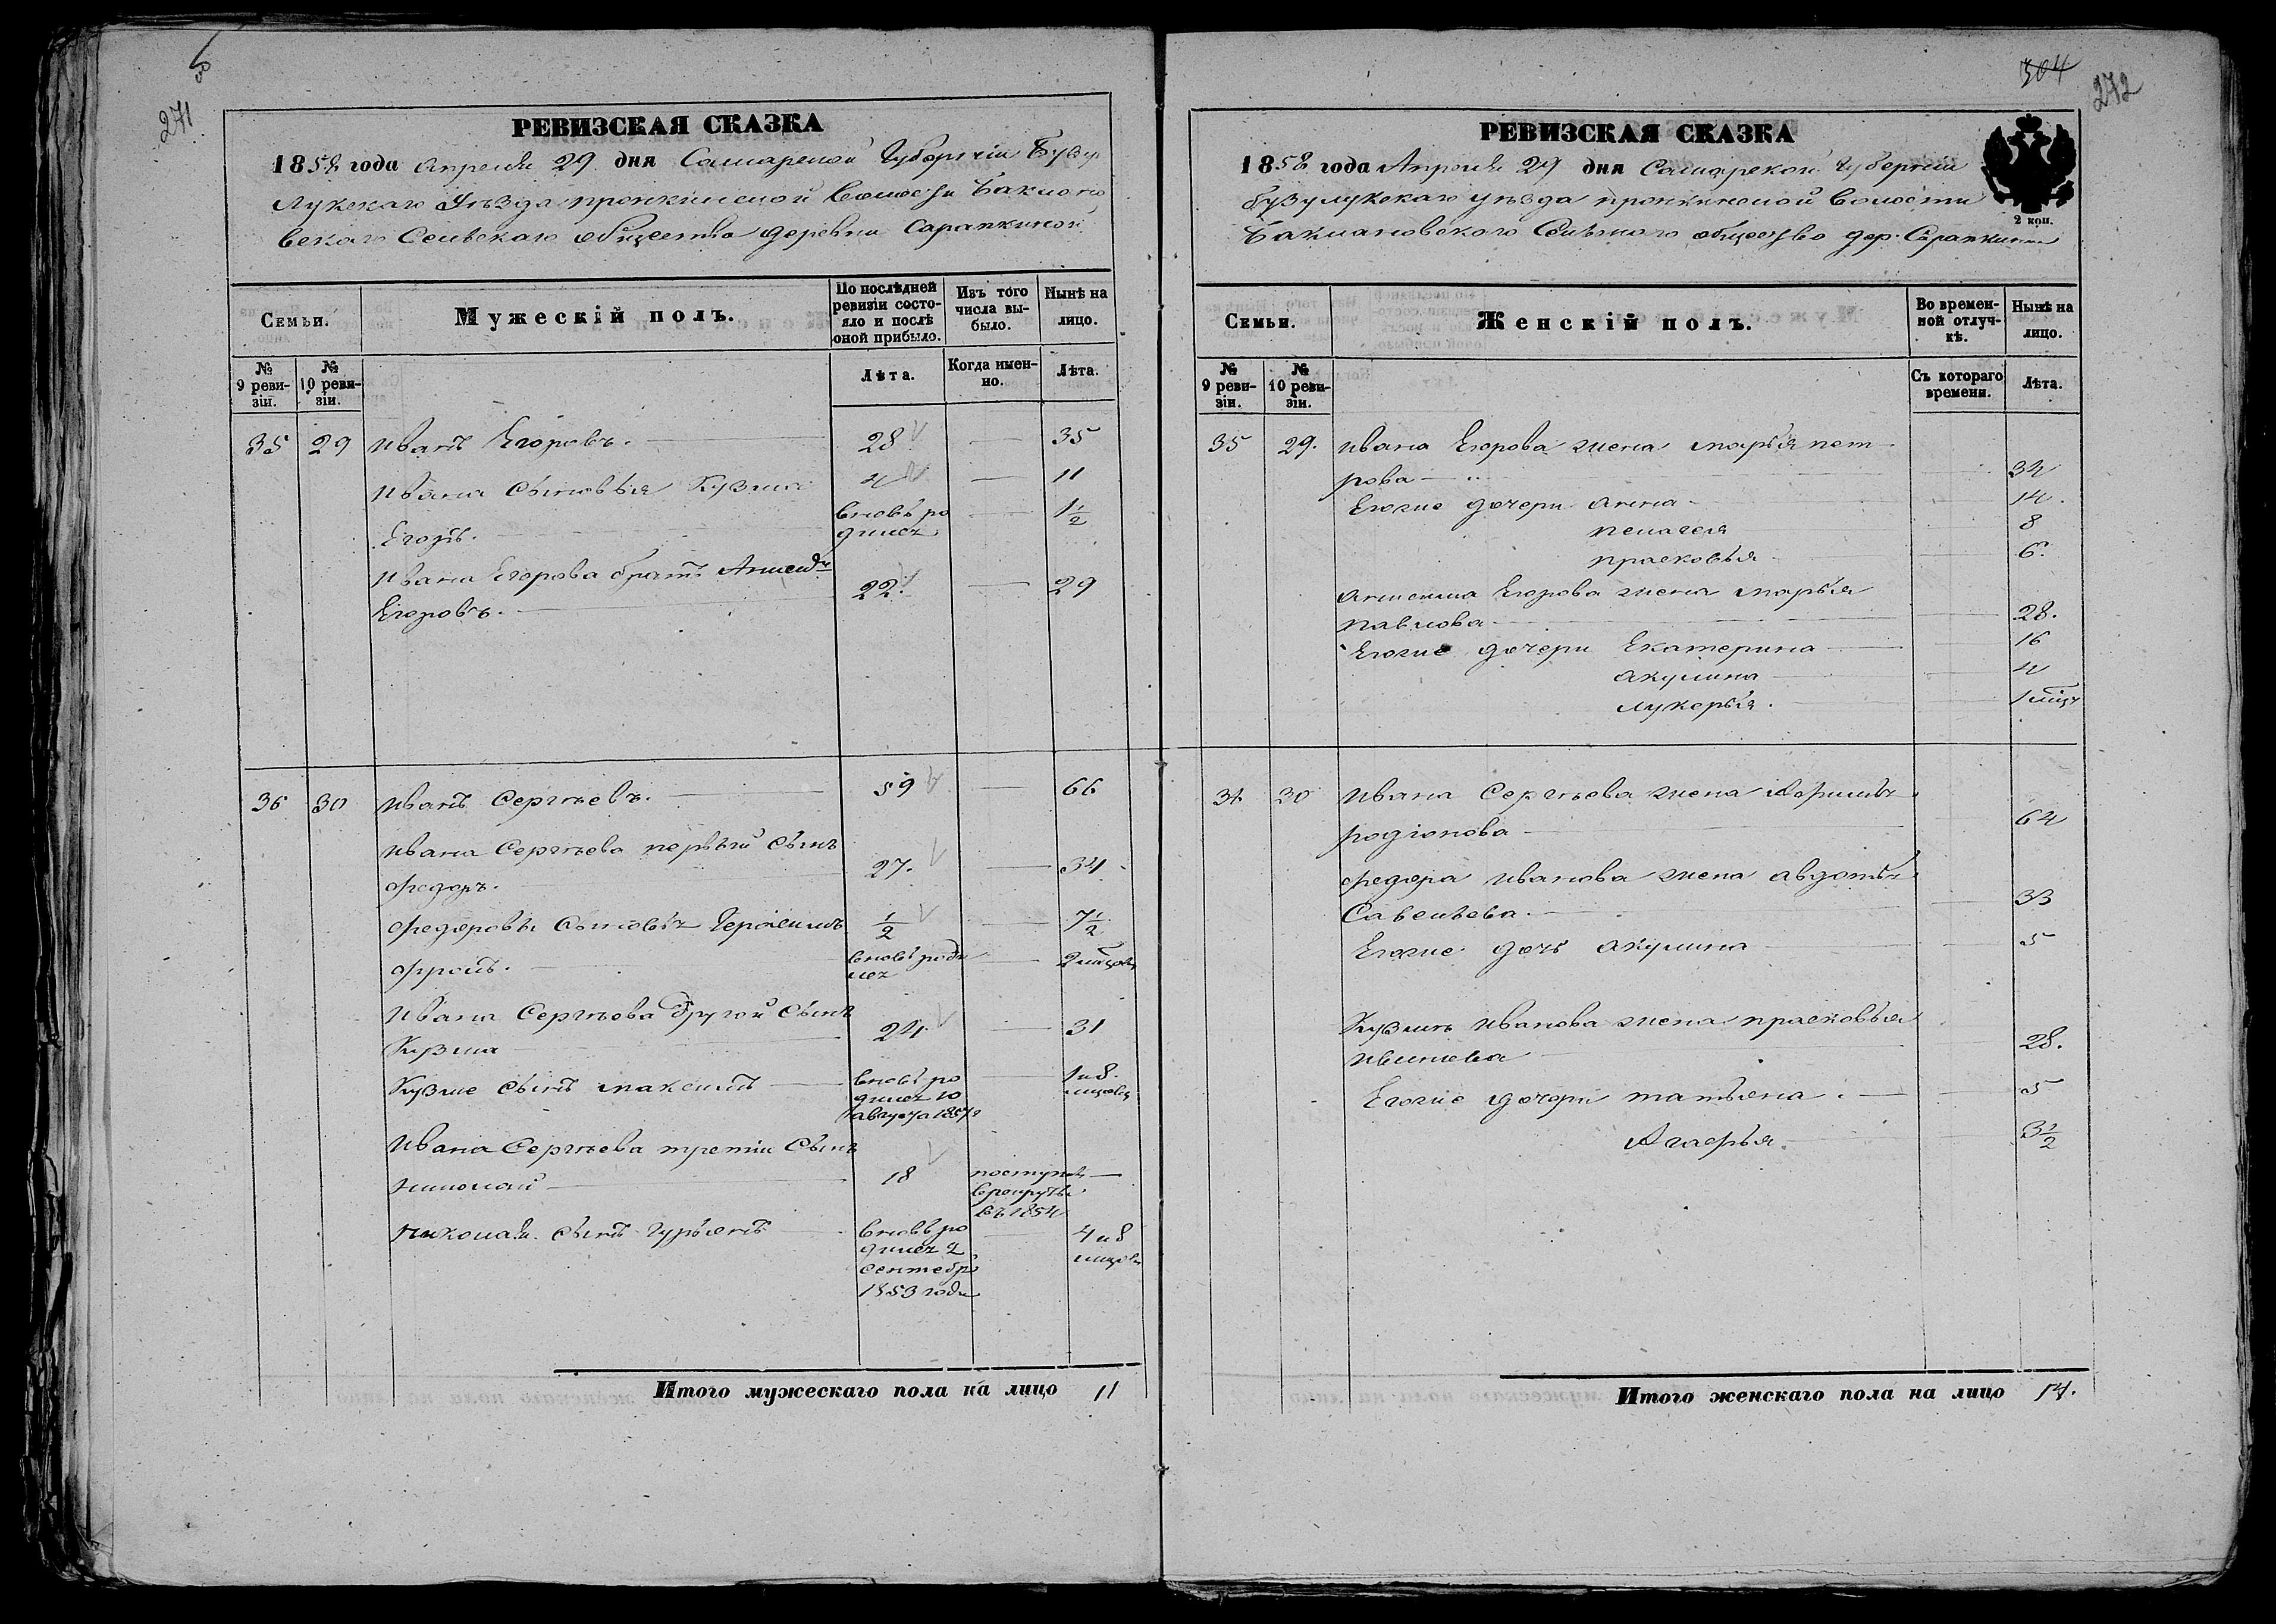 271
РЕВИЗСКАЯ СКАЗКА
1858 года Апреля 29 дня Самарской Губерніи Бузу
лукскаго Уѣзда пронкинской Волости Бакмано
вскаго Сельскаго общества деревни Сарапкиной
Семьи.
Мужескій полъ.
По послѣдней ревизіи состояло и послѣ оной прибыло.
Изъ того числа выбыло.
Нынѣ на лицо.
№ 9 ревизіи.
№ 10 ревизіи.
Лѣта.
Когда именно.
Лѣта.
35 29 Иванъ Егоровъ. 28 35
Ивана сыновья Кузма 4 11
Егоръ. вновь ро 1 1/2
дился
Ивана Егорова братъ
Егоровъ. 22. 29
36 30 Иванъ Сергѣевъ. 59 66
Ивана Сергѣева первый сынъ
Федоръ. 27. 34
Федоровы сыновья Герасимъ 1/2 7 1/2
Фролъ. вновь роди
лся
Ивана Сергѣева другой сынъ
Кузма 24 31
Кузме сынъ максимъ вновь ро 1 и 8
дился 10
августа
Ивана Сергѣева третіи сынъ
николай 18 поступ
в рекруты
въ 1854
николая сынъ гурьянъ вновь ро 4 и 8
дился 2
сентебр
1853 года
Итого мужескаго пола на лицо 11
304
272
РЕВИЗСКАЯ СКАЗКА
2 коп.
1858 года Апреля 29 дня Самарской губерніи
бузулукскаго уѣзда пронкинской волости
Бакмановского Сельского общество дер. Сарапкиной
Семьи.
Женскій полъ.
Во временной отлучкѣ.
Нынѣ на лицо.
№ 9 ревизіи.
№ 10 ревизіи.
Съ котораго времени.
Лѣта.
35 29. Ивана Егорова жена марья пет
рова 34
Егоже дочери анна 14.
пелагея 8
прасковья 6.
Анисима Егорова жена марья
павлова 28.
Егоже дочери Екатерина 16
акулина 4
лукерья.
30 Ивана Сергѣева жена
родіонова 64
федора Иванова жена авдотья
Савельева. 33
Егоже дочь акулина 5
Кузмы Иванова жена прасковья
28.
Егоже дочери татьяна. 5
Агафья. 3 1/2
Итого женскаго пола на лицо 14.